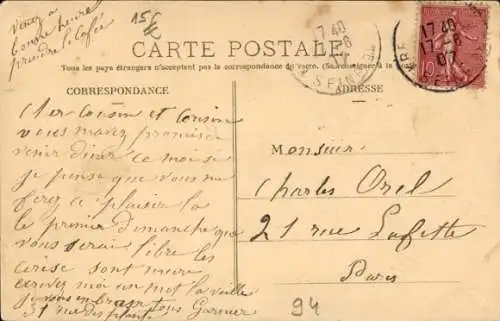 venez de
bonne heure
prendre le Café
15 f
CARTE POSTALE
Tous les pays étrangers n'acceptent pas la correspondance au verso. (Se renseigner à la
CORRESPONDANCE
ADRESSE
17 40
SEINE
17 40
17 - 6
07
10
Cher Cousin et Cousine
vous mavez promis de
venir diner ce mois ci
je pense que vous me
ferez ce plaisir la
le premier dimanche que
vous serai libre les
cerise sont mure
ecrivez moi un mot la veille
je vous embrasse tous Garnier
31 rue des plantes
Monsieur
Charles Orel
21 rue Lafette
Paris
94